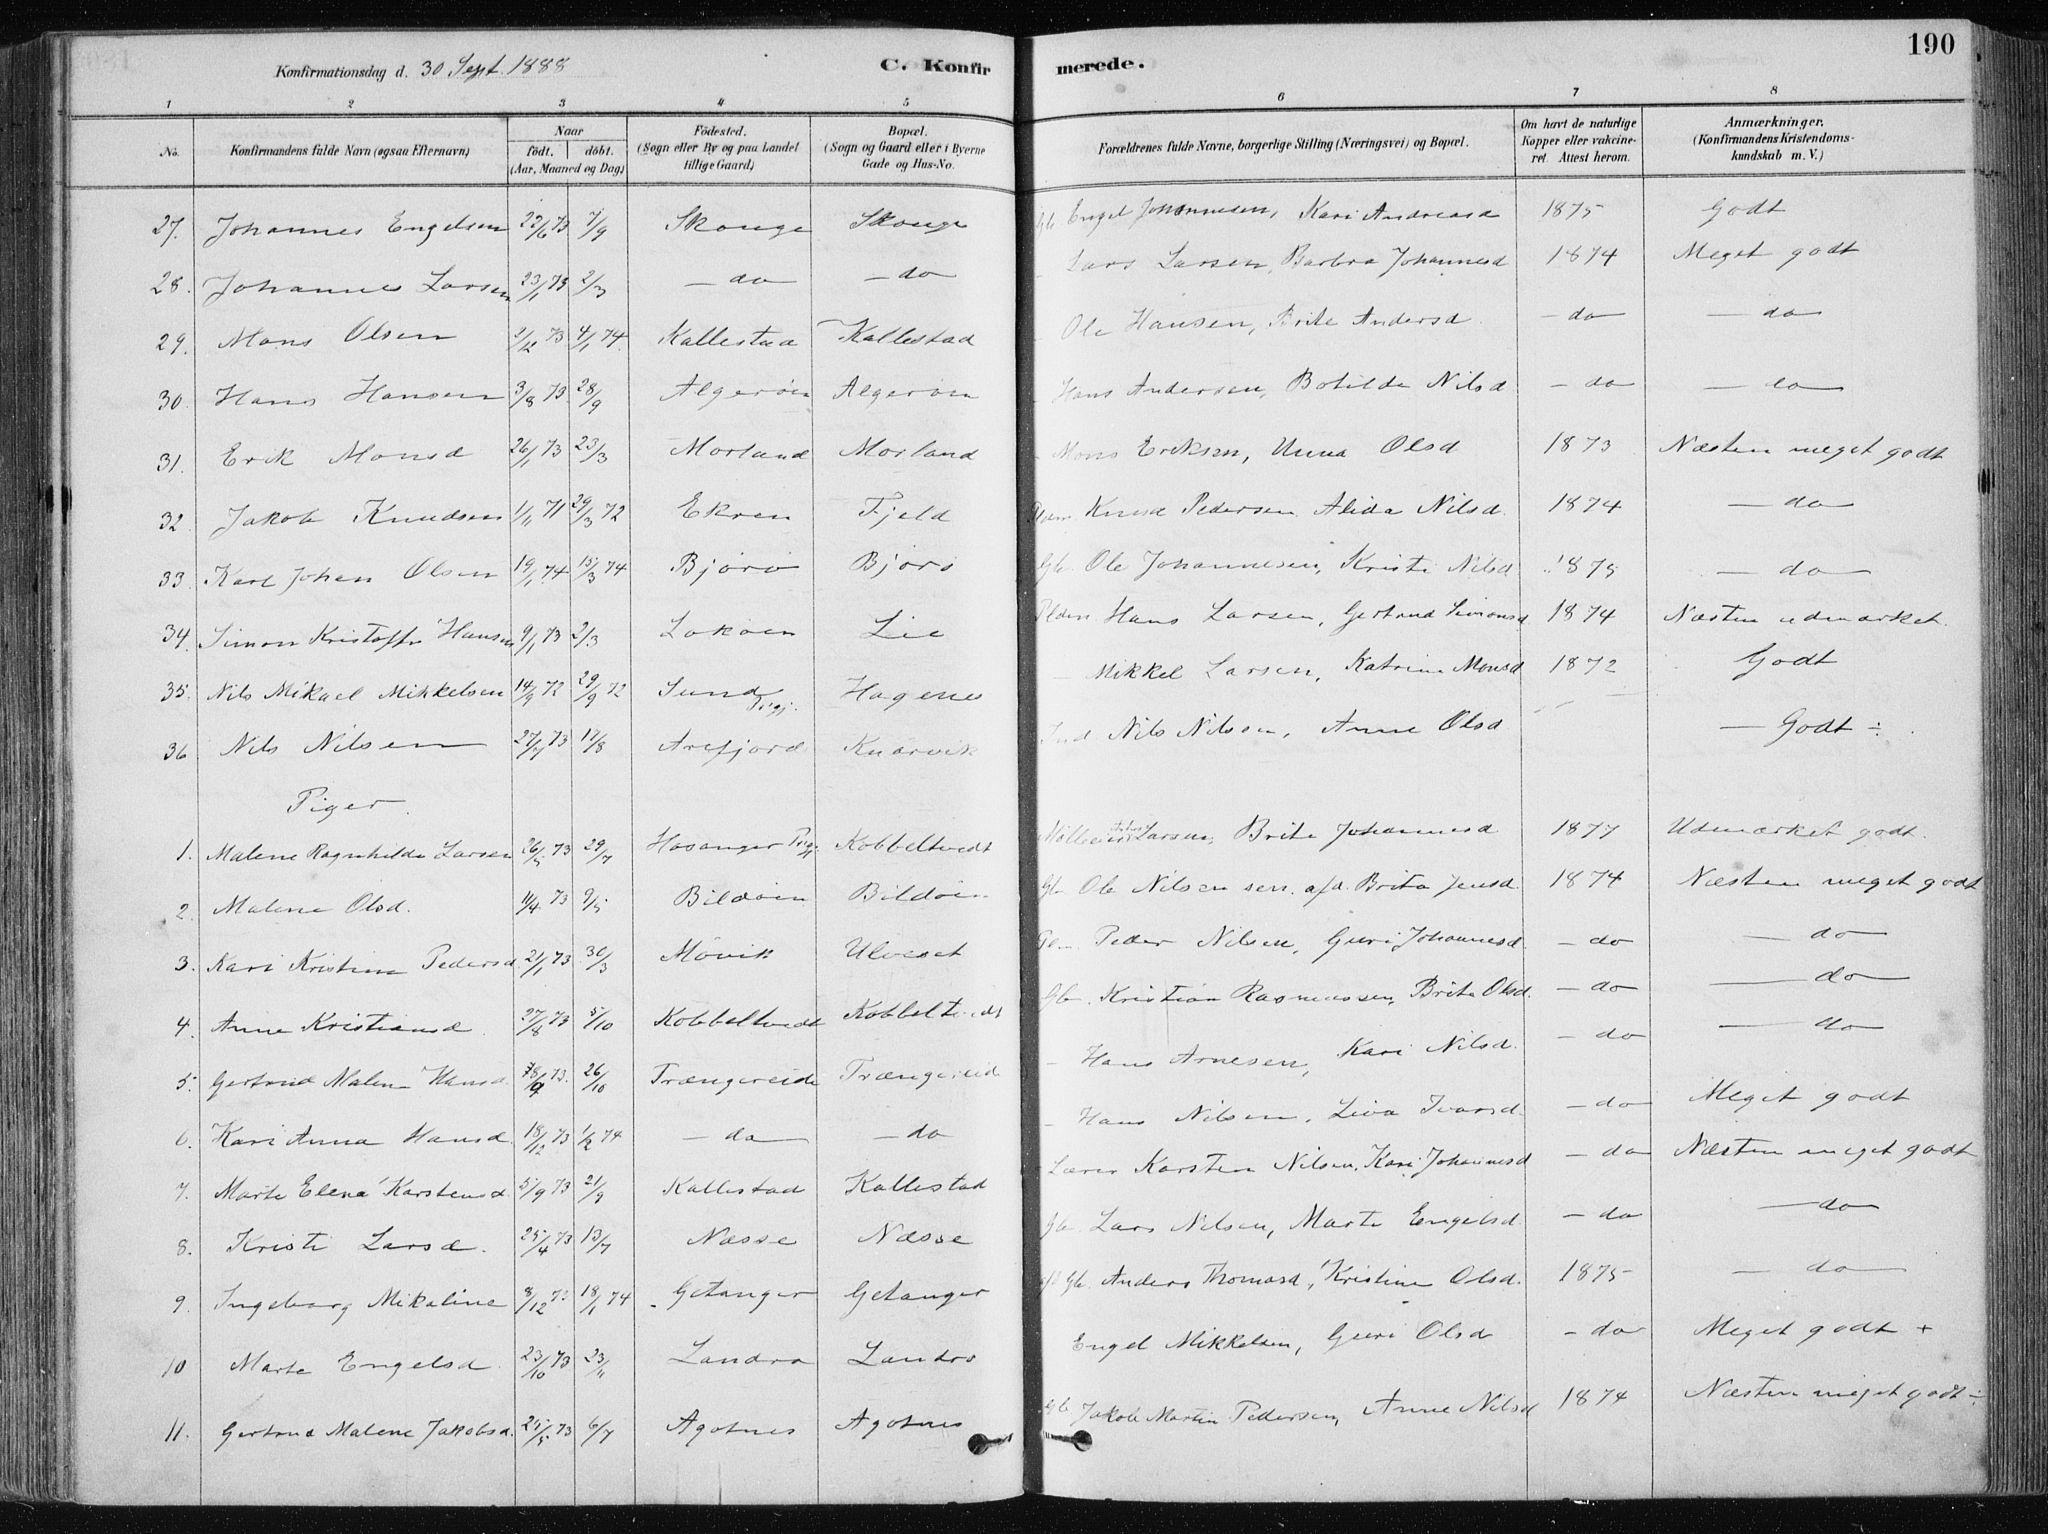 190
Konfirmationsdag d. 30 Sept. 1888 C. Konfirmerede.
1 2 3 4 5 6 7 8
No. Konfirmandens fulde Navn (ogsaa Efternavn). Naar født. døbt. (Aar, Maaned og Dag) Fødested. (Sogn eller By og paa Landet tillige Gaard) Bopæl. (Sogn og Gaard eller i Byerne Gade og Hus-No. Forældrenes fulde Navne, borgerlige Stilling (Næringsvei) og Bopæl. Om havt de naturlige Kopper eller vakcineret. Attest herom. Anmærkninger. (Konfirmandens Kristendomskundskab m. V.)
27. Johannes Engelsen 22/6 73 7/9 Skouge Skouge Gb Engel Johannesen, Kari Andreasd 1875 Godt
28. Johannes Larsen 23/1 73 2/3 — do — do — Lars Larsen, Barbra Johannesd 1874 Meget godt
29. Mons Olsen 2/12 73 4/1 74. Kallestad Kallestad Ole Hansen, Brite Andersd — do — do
30. Hans Hansen 3/8 73 28/9 Algerøen Algerøen Hans Andersen, Botilde Nilsd — do — do
31. Erik Monsd 26/1 73 23/3 Morland Morland — Mons Eriksen, Unna Olsd 1873 Næsten meget godt
32. Jakob Knudsen 1/11 71 29/3 72 Ekren Fjeld Pldm. Knud Pedersen, Alida Nilsd. 1874 — do
33. Karl Johan Olsen 19/1 74 15/3 74 Bjørø Bjørø Gb. Ole Johannesen, Kristi Nilsd 1875 — do
34. Simon Kristoffe Hansen 9/1 73 2/3 Lokøen Lie Pldm Hans Larsen, Gertrud Simonsd 1874 Næsten udmærket.
35. Nils Mikael Mikkelsen 14/9 72 29/9 72 Sund Prgj. Hagenes — Mikkel Larsen, Katrine Monsd 1872 Godt
36 Nils Nilsen 27/7 73 17/8 Arefjord Knarvik Ind Nils Nilsen, Anne Olsd — Godt ÷
Piger.
1. Malene Ragnhilde Larsen 26/5 73 29/7 Hosanger Prgj Kobbeltvedt Larsen, Brite Johannesd 1877 Udmærket godt.
2. Malene Olsd. 11/4 73 9/5 Bildøen Bildøen Gb Ole Nilsen sen. afd. Brita Jensd. 1874 Næsten meget godt
3. Kari Kristine Pedersd 21/1 73 30/3 Møvik Ulveset Peder Nilsen, Guri Johannesd. — do — do
4. Anne Kristiansd 27/8 73 5/10 Kobbeltvedt Kobbeltvedt Gb. Kristian Rasmussen, Brite Olsd. — do — do
5. Gertrud Malene Hansd. 28/9 73. 26/10 Trængereide Trængereid — Hans Arnesen, Kari Nilsd. — do — do
6. Kari Anna Hansd. 18/12 73 1/2 74 — do — do — Hans Nilsen, Liva Ivarsd. — do Meget godt
7. Marte Elena Karstensd. 5/9 73 21/9 Kallestad Kallestad Lærer Karsten Nilsen, Kari Johannesd — do Næsten meget godt
8. Kristi Larsd. 25/4 73 13/7 Næsse Næsse Gb. Lars Nilsen, Marte Engelsd. — do — do
9. Ingeborg Mikaline 8/12 73 18/1 74 Getanger Getanger Gb. Anders Thomasd, Kristine Olsd. 1875 — do
10 Marte Engelsd. 23/10 73 23/11 Landro Landro Engel Mikkelsen, Guri Olsd — do Meget godt +
11. Gertrud Malene Jakobsd. 25/5 73 6/7 Agotnes Agotnes Gb Jakob Martin Pedersen, Anne Nilsd 1874 Næsten meget godt ÷